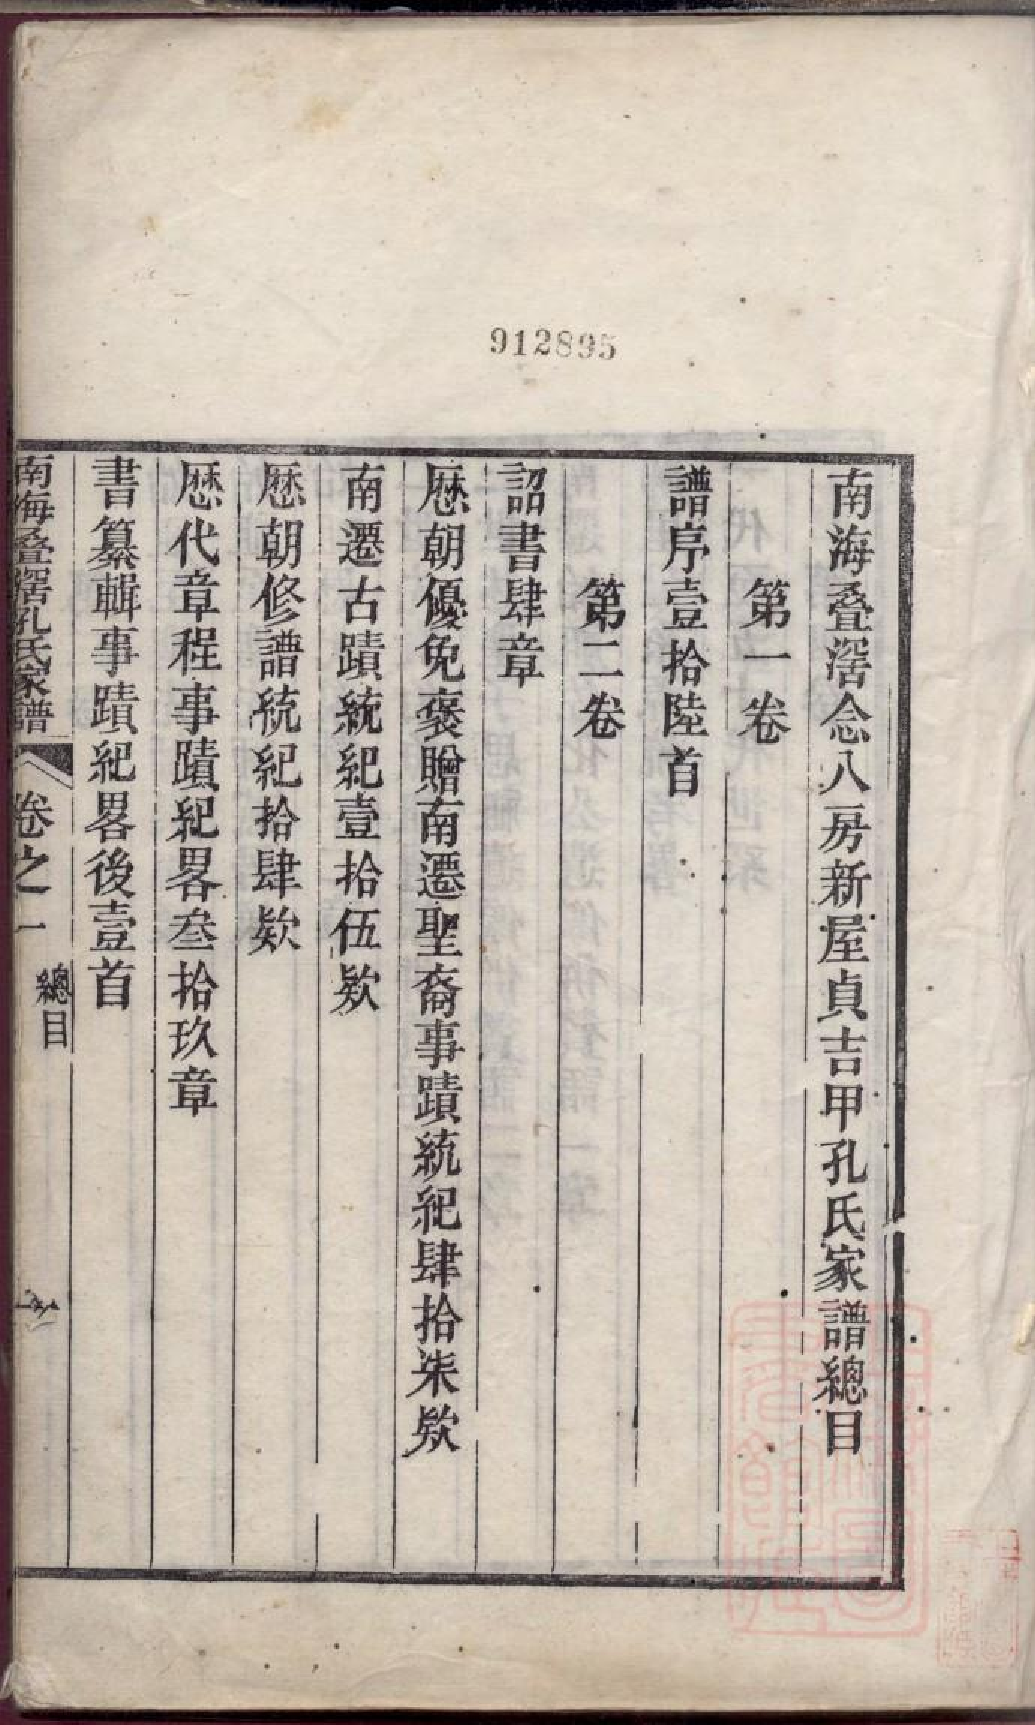 912895
南海叠滘念八房新屋貞吉甲孔氏家譜總目
第一卷
譜序壹拾陸首
第二卷
詔書肆章
厯朝優免褒贈南遷聖裔事蹟統紀肆拾柒欵
南遷古蹟統紀壹拾伍欵
厯朝修譜統紀拾肆欵
厯代章程事蹟紀畧叁拾玖章
書纂輯事蹟紀畧後壹首
南海叠滘孔氏家譜
卷之一
總目